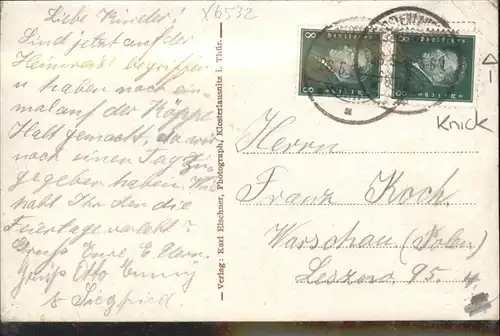 Liebe Kinder!
X6532
Sind jetzt auf der
Heimreise begriffen
u haben noch ein-
mal auf der Köppe
Halt gemacht, da wir
noch einen Tag Zu-
gegeben haben. Wie
habt Ihr denn die
Feiertage verlebt?
Gruß Eure E
Gruß Otto Enny
& Siegfried.
– Verlag: Karl Elschner, Photograph, Klosterlausnitz i. Thür. –
8 Deutsches Reich 8
8 Deutsches Reich 8
Knick
Herrn
Franz Koch.
Warschau (Polen)
Leszno 95.